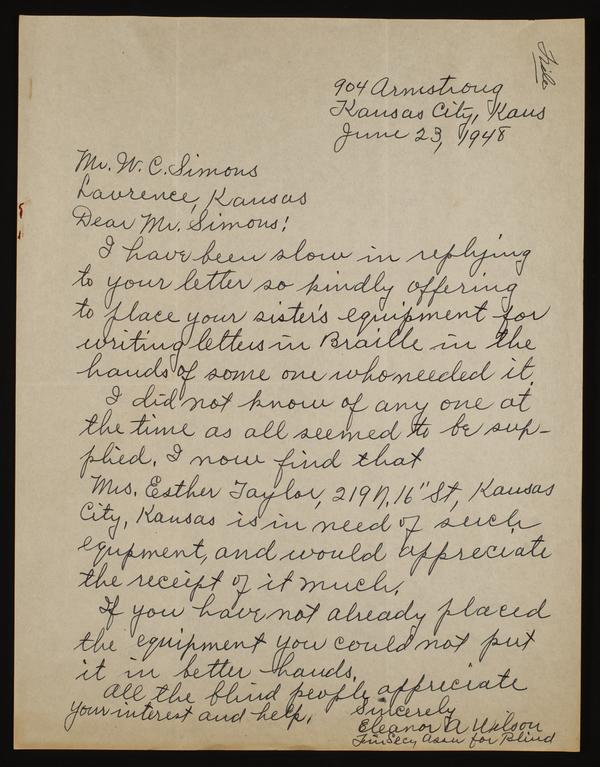 File
904 Armstrong
Kansas City, Kans
June 23, 1948
Mr. W. C. Simons
Lawrence, Kansas
Dear Mr. Simons:
I have been slow in replying
to your letter so kindly offering
to place your sister's equipment for
writing letters in Braille in the
hands of some one who needed it.
I did not know of any one at
the time as all seemed to be sup-
plied. I now find that
Mrs. Esther Taylor, 219 N. 16" St, Kansas
City, Kansas is in need of such
equpment, and would appreciate
the receipt of it much.
If you have not already placed
the equipment you could not put
it in better hands.
All the blind people appreciate
your interest and help. Sincerely
Eleanor A. Wilson
Fin Secy Assn for Blind